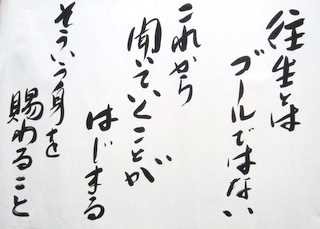 往生とは
ゴールではない
これから
聞いていくことが
はじまる
そういう身を
賜わること